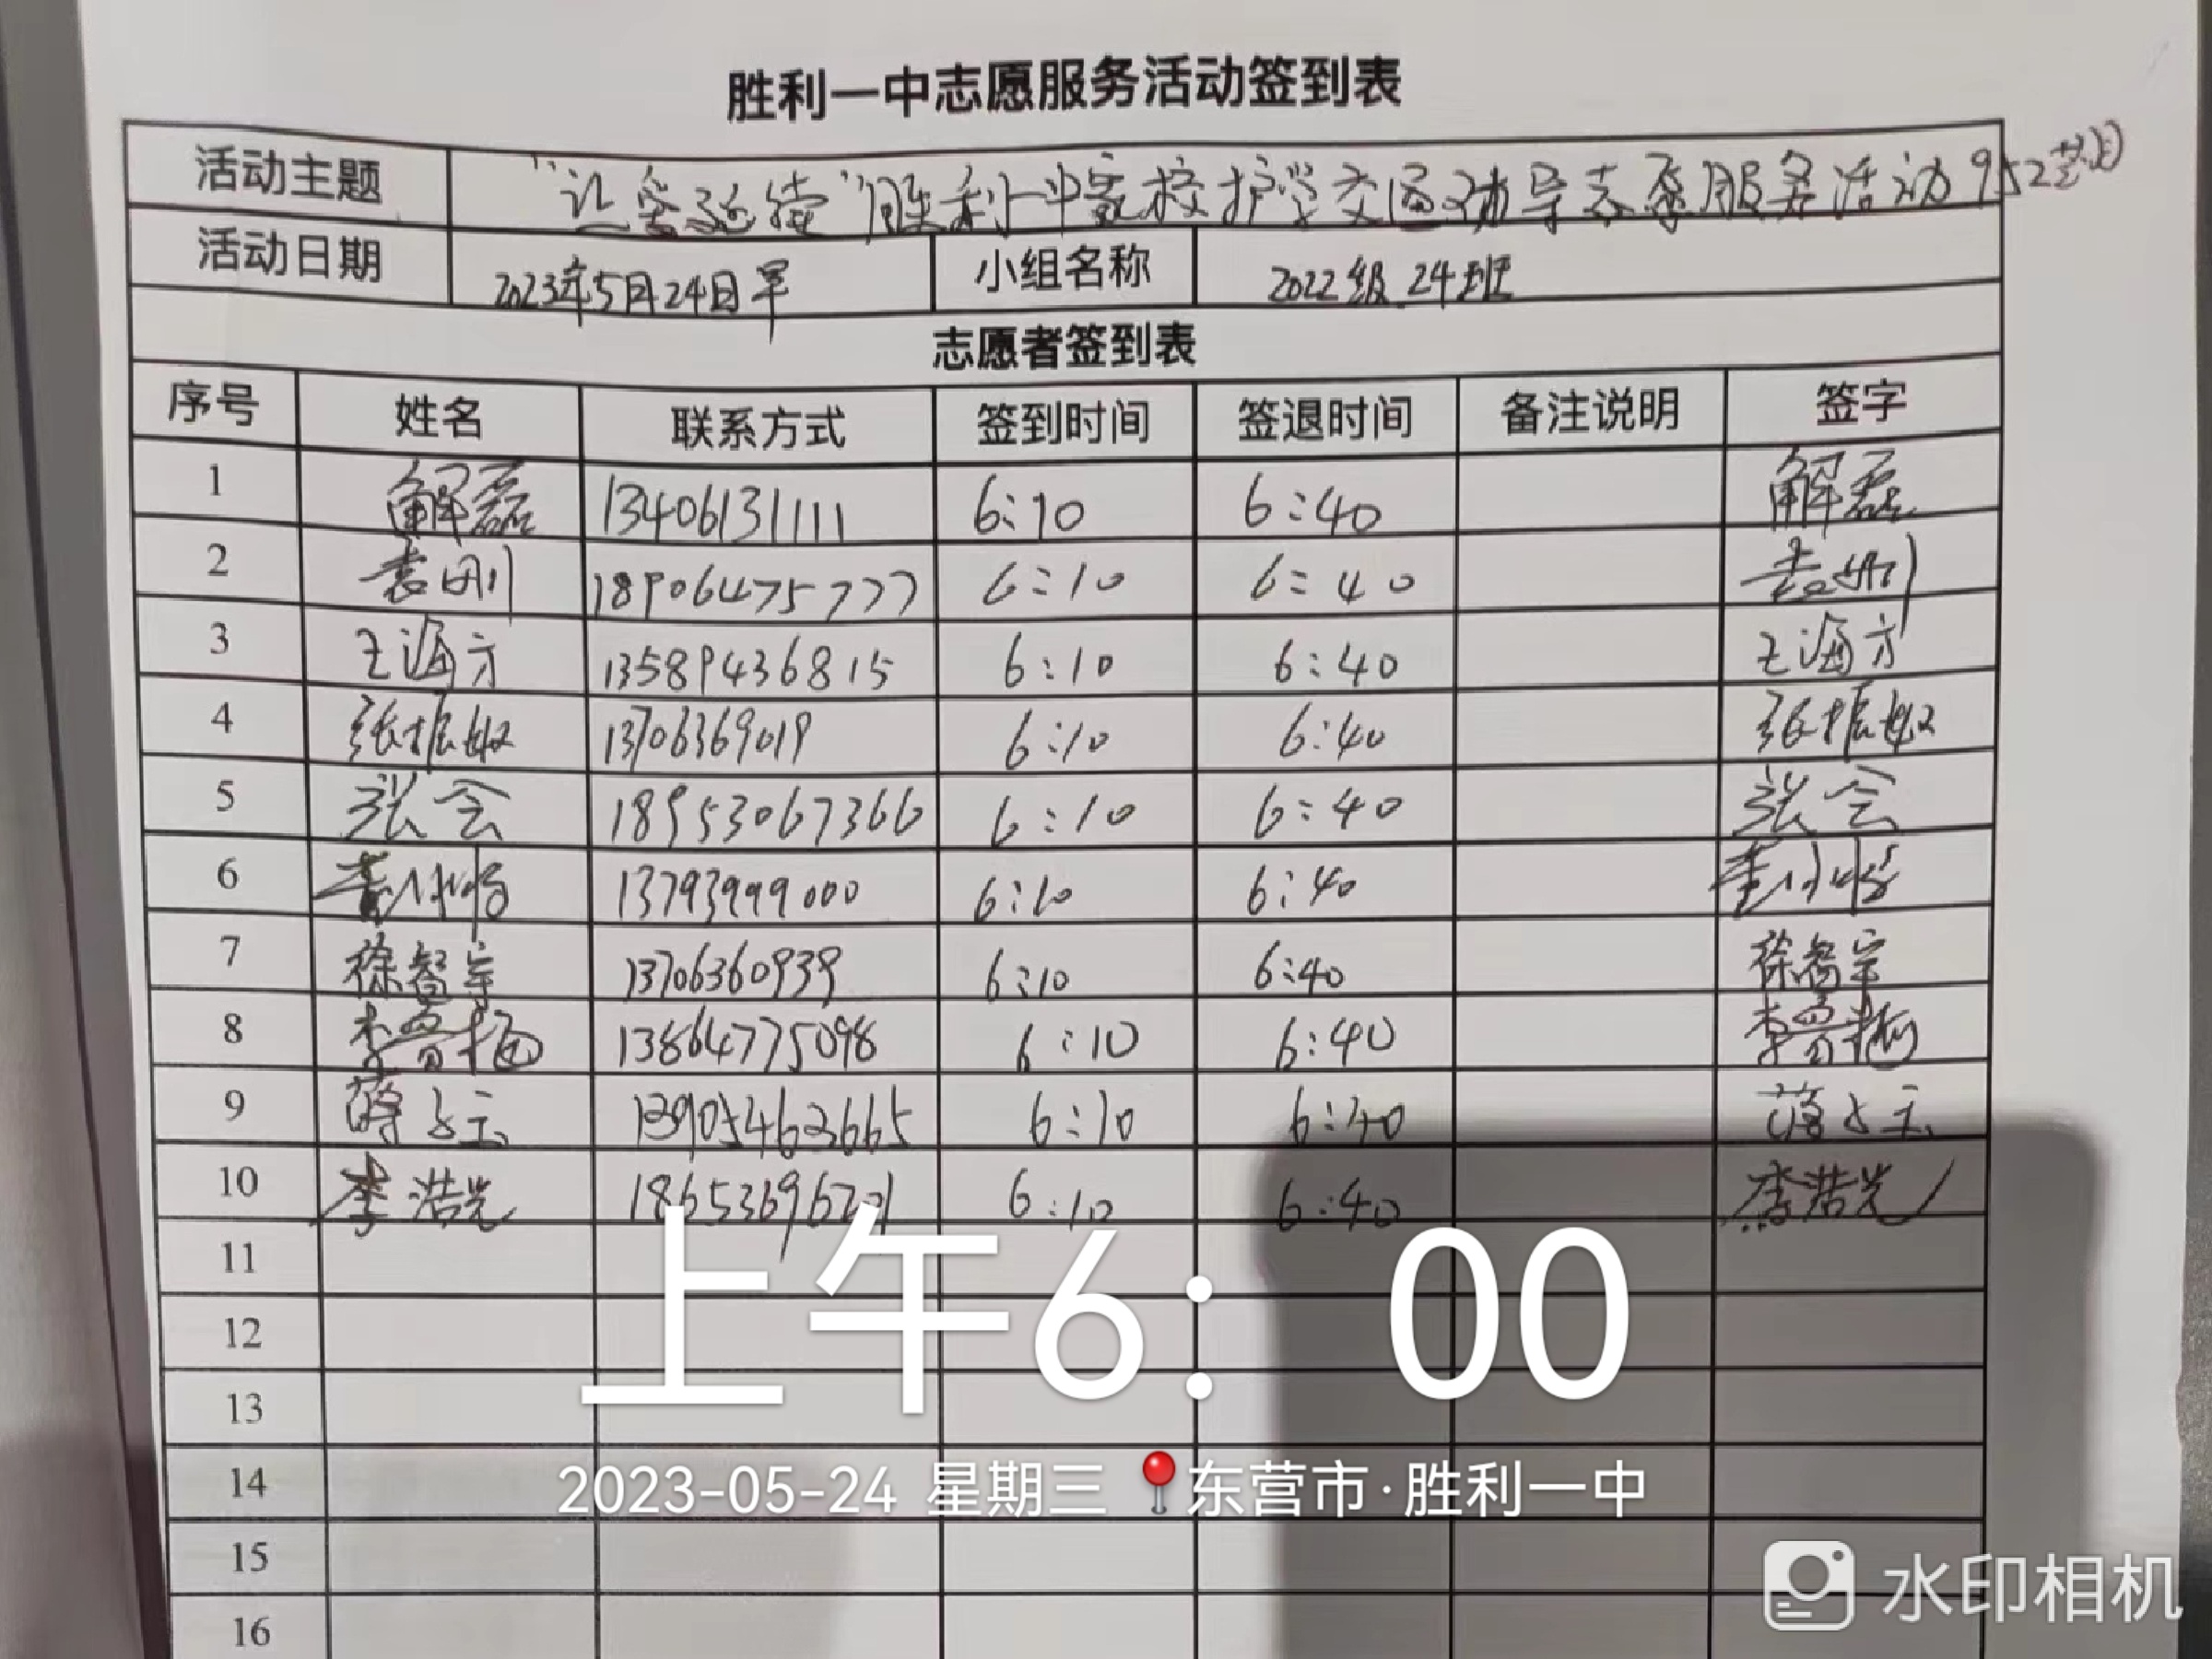 胜利一中志愿服务活动签到表
活动主题 "让爱延续"胜利一中家校护学交通辅导志愿服务活动952
活动日期 2023年5月24日早 小组名称 2022级.24班
志愿者签到表
序号 姓名 联系方式 签到时间 签退时间 备注说明 签字
1 解磊 13406131111 6:10 6:40 解磊
2 袁刚 18906475777 6:10 6:40 袁刚
3 王海方 13589436815 6:10 6:40 王海方
4 张振 13706369019 6:10 6:40 张振
5 张会 18953067366 6:10 6:40 张会
6 13793999000 6:10 6:40
7 徐智宇 13706360939 6:10 6:40 徐智宇
8 李 13864775098 6:10 6:40 李
9 13905462665 6:10 6:40
10 李浩光 18653696201 6:10 6:40 李浩光
11
12
13
14
15
16
上午6:00
2023-05-24 星期三 东营市·胜利一中
水印相机